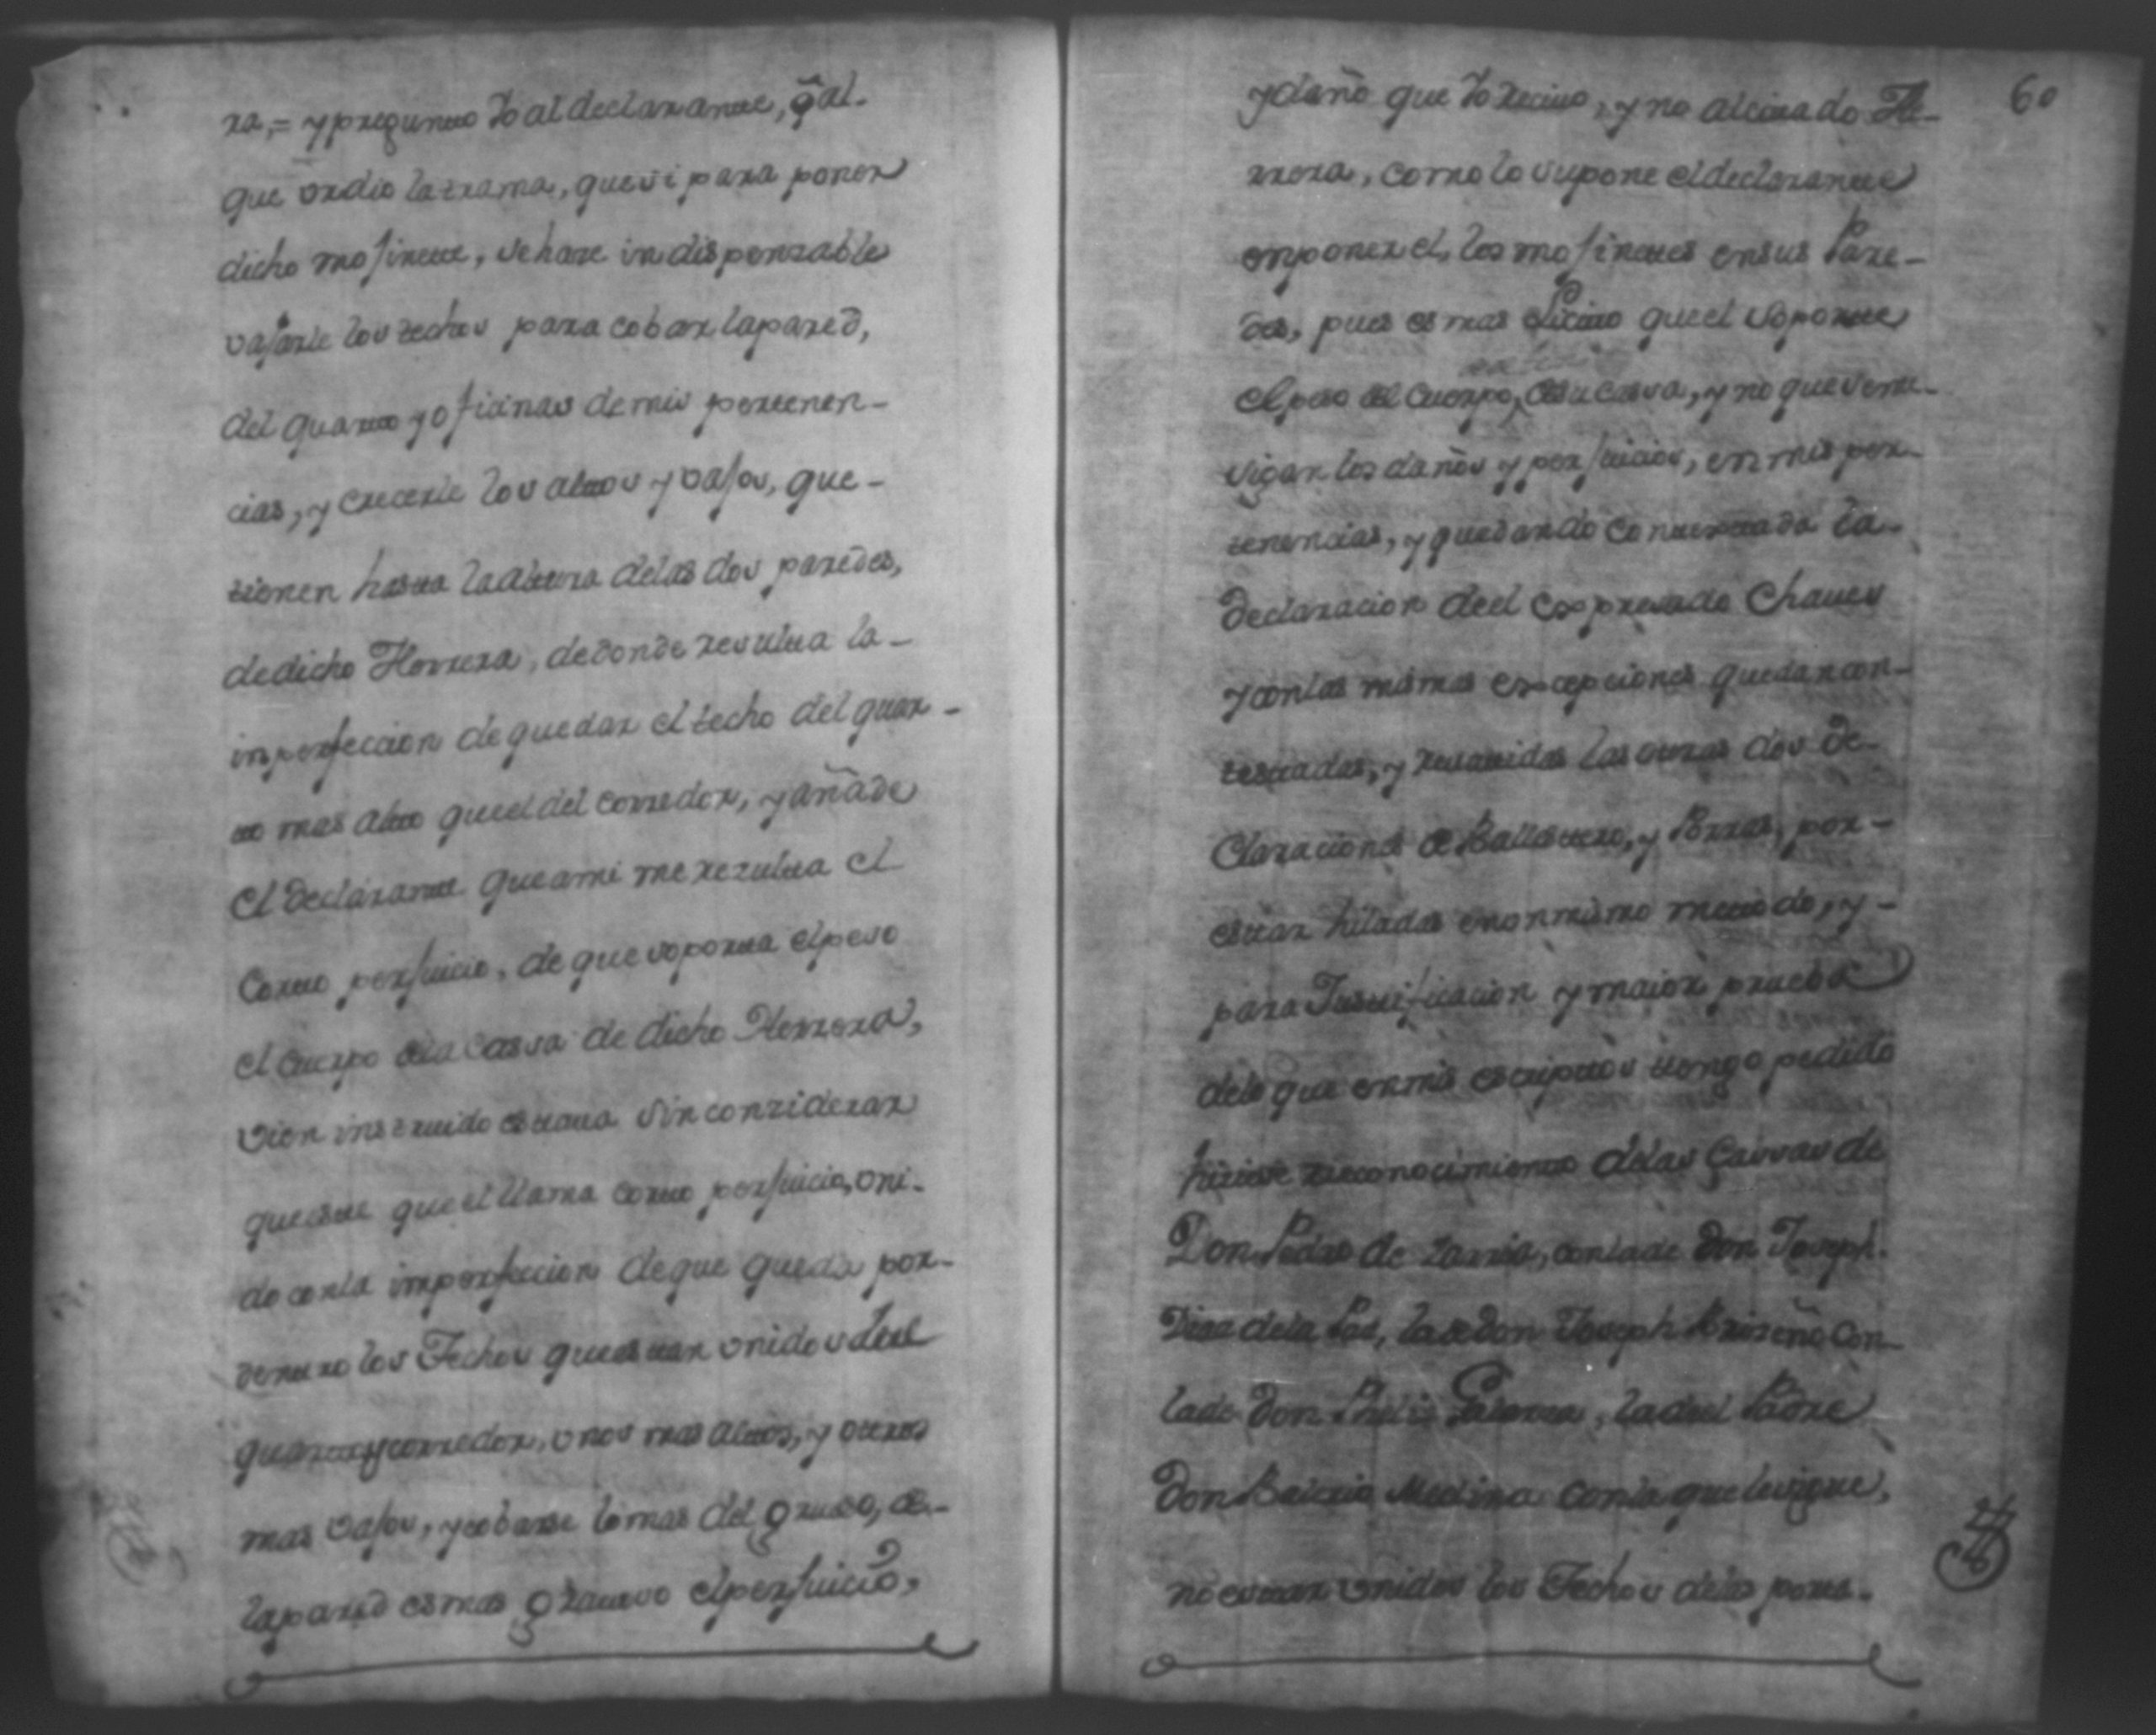 ra,= y pregunto Yo al declarante, q̃ al-
que vrdio la trama, que si para poner
dicho mojinete, se hase indispensable
vajarle los techos para cobar la pared,
del quarto y oficinas de mis pertenen-
cias, y crecerle los altos y vajos, que-
tienen hasta la altura de las dos paredes,
de dicho Herrera, de donde resulta la-
imperfeccion de quedar el techo del quar-
to mas alto que el del corredor, y añade
el declarante que ami me rezulta el
corto perjuicio, de que soporta el peso
el cuerpo de la cassa de dicho Herrera,
vien instruido estava sin conziderar
que este que el llama corto perjuicio, vni-
do con la imperfeccion de que queda por-
dentro los Techos que estan vnidos del
quarto y corredor, vnos mas altos, y otros
mas vajos, y cobarse lo mas del grueso, de-
la pared es mas gravoso el perjuicio,
y daño que Yo recivo, y no al citado He-
rrera, como lo supone el declarante
en poner el, los mojinetes en sus Pare-
des, pues es mas Licito que el soporte
el peso del cuerpo, de su cassa, y no que se me-
sigan los daños y perjuicios, en mis per-
tenencias, y quedando contextada la-
declaracion de el expresado Chaves
y con las mismas excepciones quedan con-
testadas, y las otras dos de-
claraciones de Ballestero, y Porras, por-
estar hiladas en on mismo metodo, y-
para Justificacion y maior prueba
delo que en mis escriptos tengo pedido
hiziese reconocimiento delas Cassas de
Don Pedro de con la de Don Joseph
Dias dela Pas, la de Don Joseph Briseño con-
la de Don la del Padre
Don Medina con la que le sigue,
no estan vnidos los Techos delas perte-
60